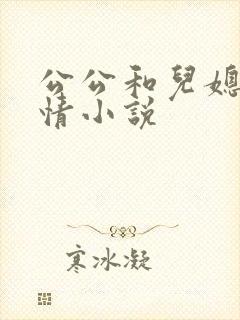 公公和兒媳
情小說
寒冰凝